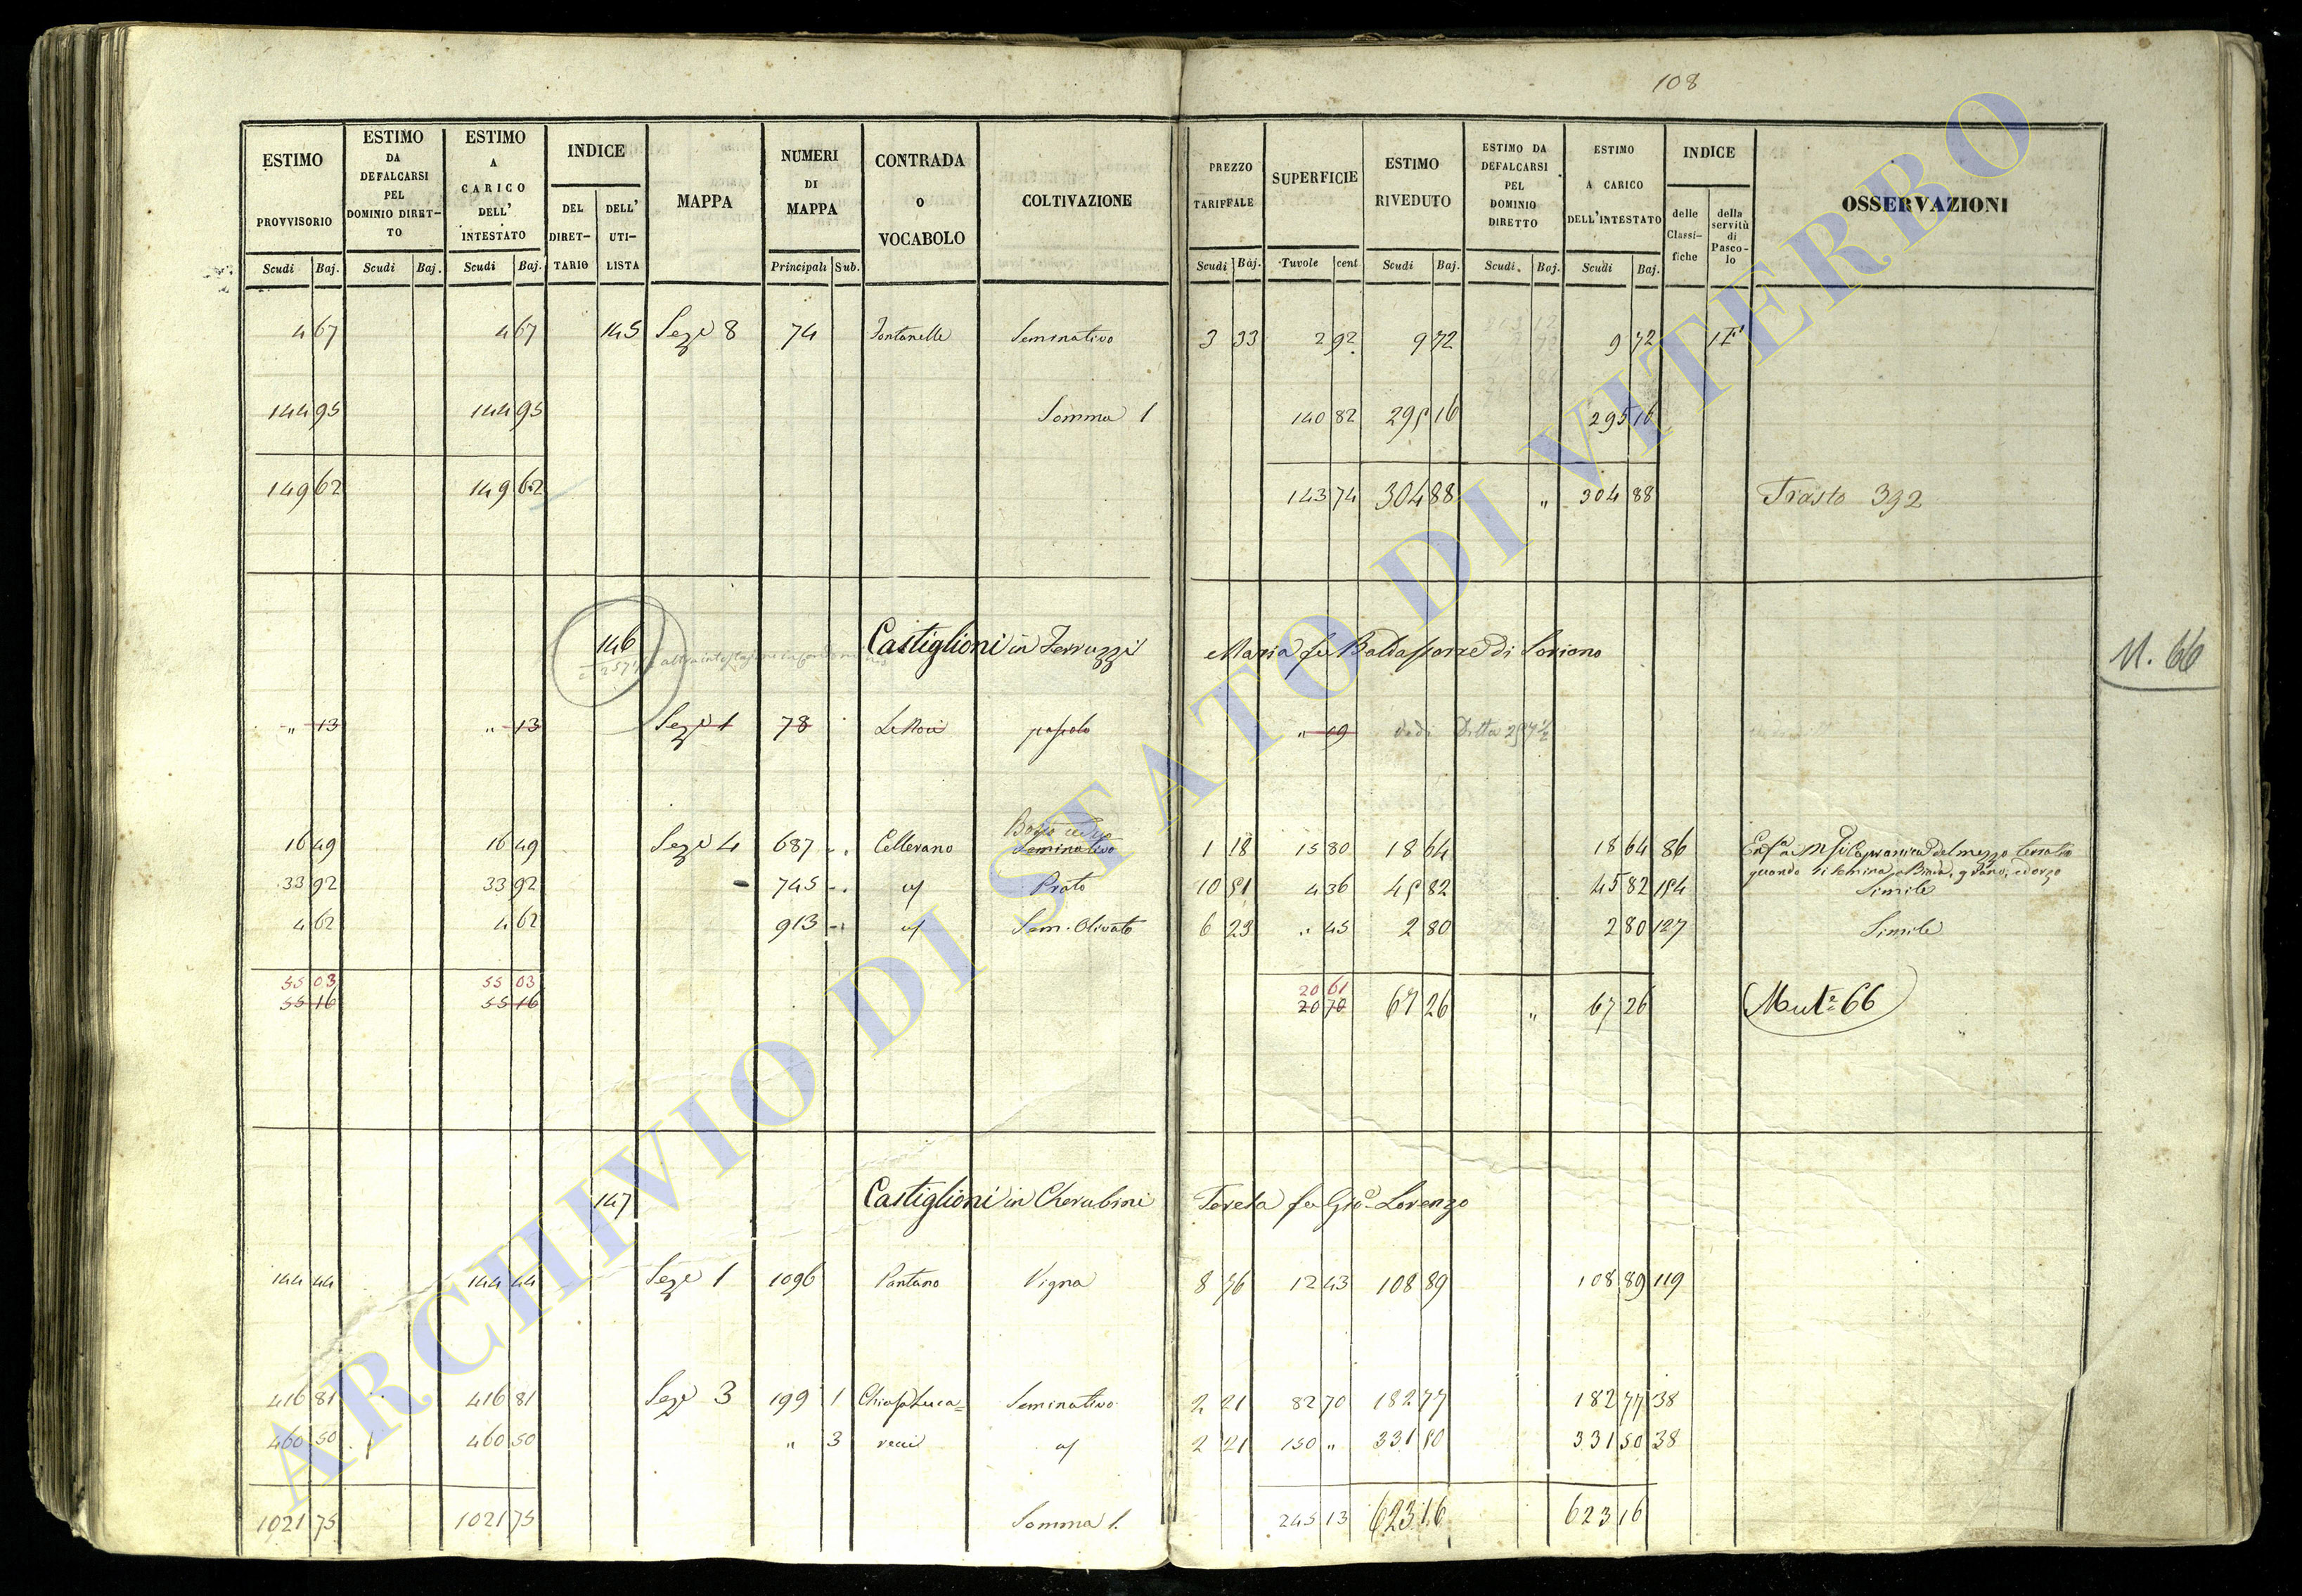 108
ESTIMO PROVVISORIO Scudi Baj.
ESTIMO DA DEFALCARSI PEL DOMINIO DIRET-TO Scudi Baj.
ESTIMO A CARICO DELL' INTESTATO Scudi Baj.
INDICE DEL DIRET-TARIO DELL' UTI-LISTA
MAPPA
NUMERI DI MAPPA Principali Sub.
CONTRADA O VOCABOLO
COLTIVAZIONE
PREZZO TARIFFALE Scudi Baj.
SUPERFICIE Tavole cent
ESTIMO RIVEDUTO Scudi Baj.
ESTIMO DA DEFALCARSI PEL DOMINIO DIRETTO Scudi. Baj.
ESTIMO A CARICO DELL'INTESTATO Scudi Baj.
INDICE delle Classi-fiche della servitù di Pasco-lo
OSSERVAZIONI
4 67 4 67 145 Seze 8 74 Fontanelle Seminativo 3 33 2 92 9 72 9 72
144 95 144 95 Somma 1 140 82 295 16 295 16
149 62 149 62 143 74 304 88 " 304 88 Trasto 392
146 Castiglioni in Ferruzzi Maria fu Baldassarre di Soriano
N. 66
" 13 " 13 Seze 1 78 pascolo " 09 Ditta 257½
16 49 16 49 Seze 4 687 Cellerano Bosco ceduo Seminativo 1 18 15 80 18 64 18 64 86
quando si semina
33 92 33 92 745 Prato 10 51 4 36 45 82 45 82 154 Simile
4 62 4 62 913 Sem. Olivato 6 23 " 45 2 80 2 80 127 Simile
55 03 55 03 20 61
55 16 55 16 20 70 67 26 " 67 26 Mut.e 66
147 Castiglioni in Cherubini Teresa fu Gio. Lorenzo
144 44 144 44 Seze 1 1096 Pantano Vigna 8 76 12 43 108 89 108 89 119
416 81 416 81 Seze 3 199 1 Seminativo 2 21 82 70 182 77 182 77 38
460 50 460 50 " 3 2 21 150 " 331 50 331 50 38
1021 75 1021 75 Somma 1. 245 13 623 16 623 16
ARCHIVIO DI STATO DI VITERBO